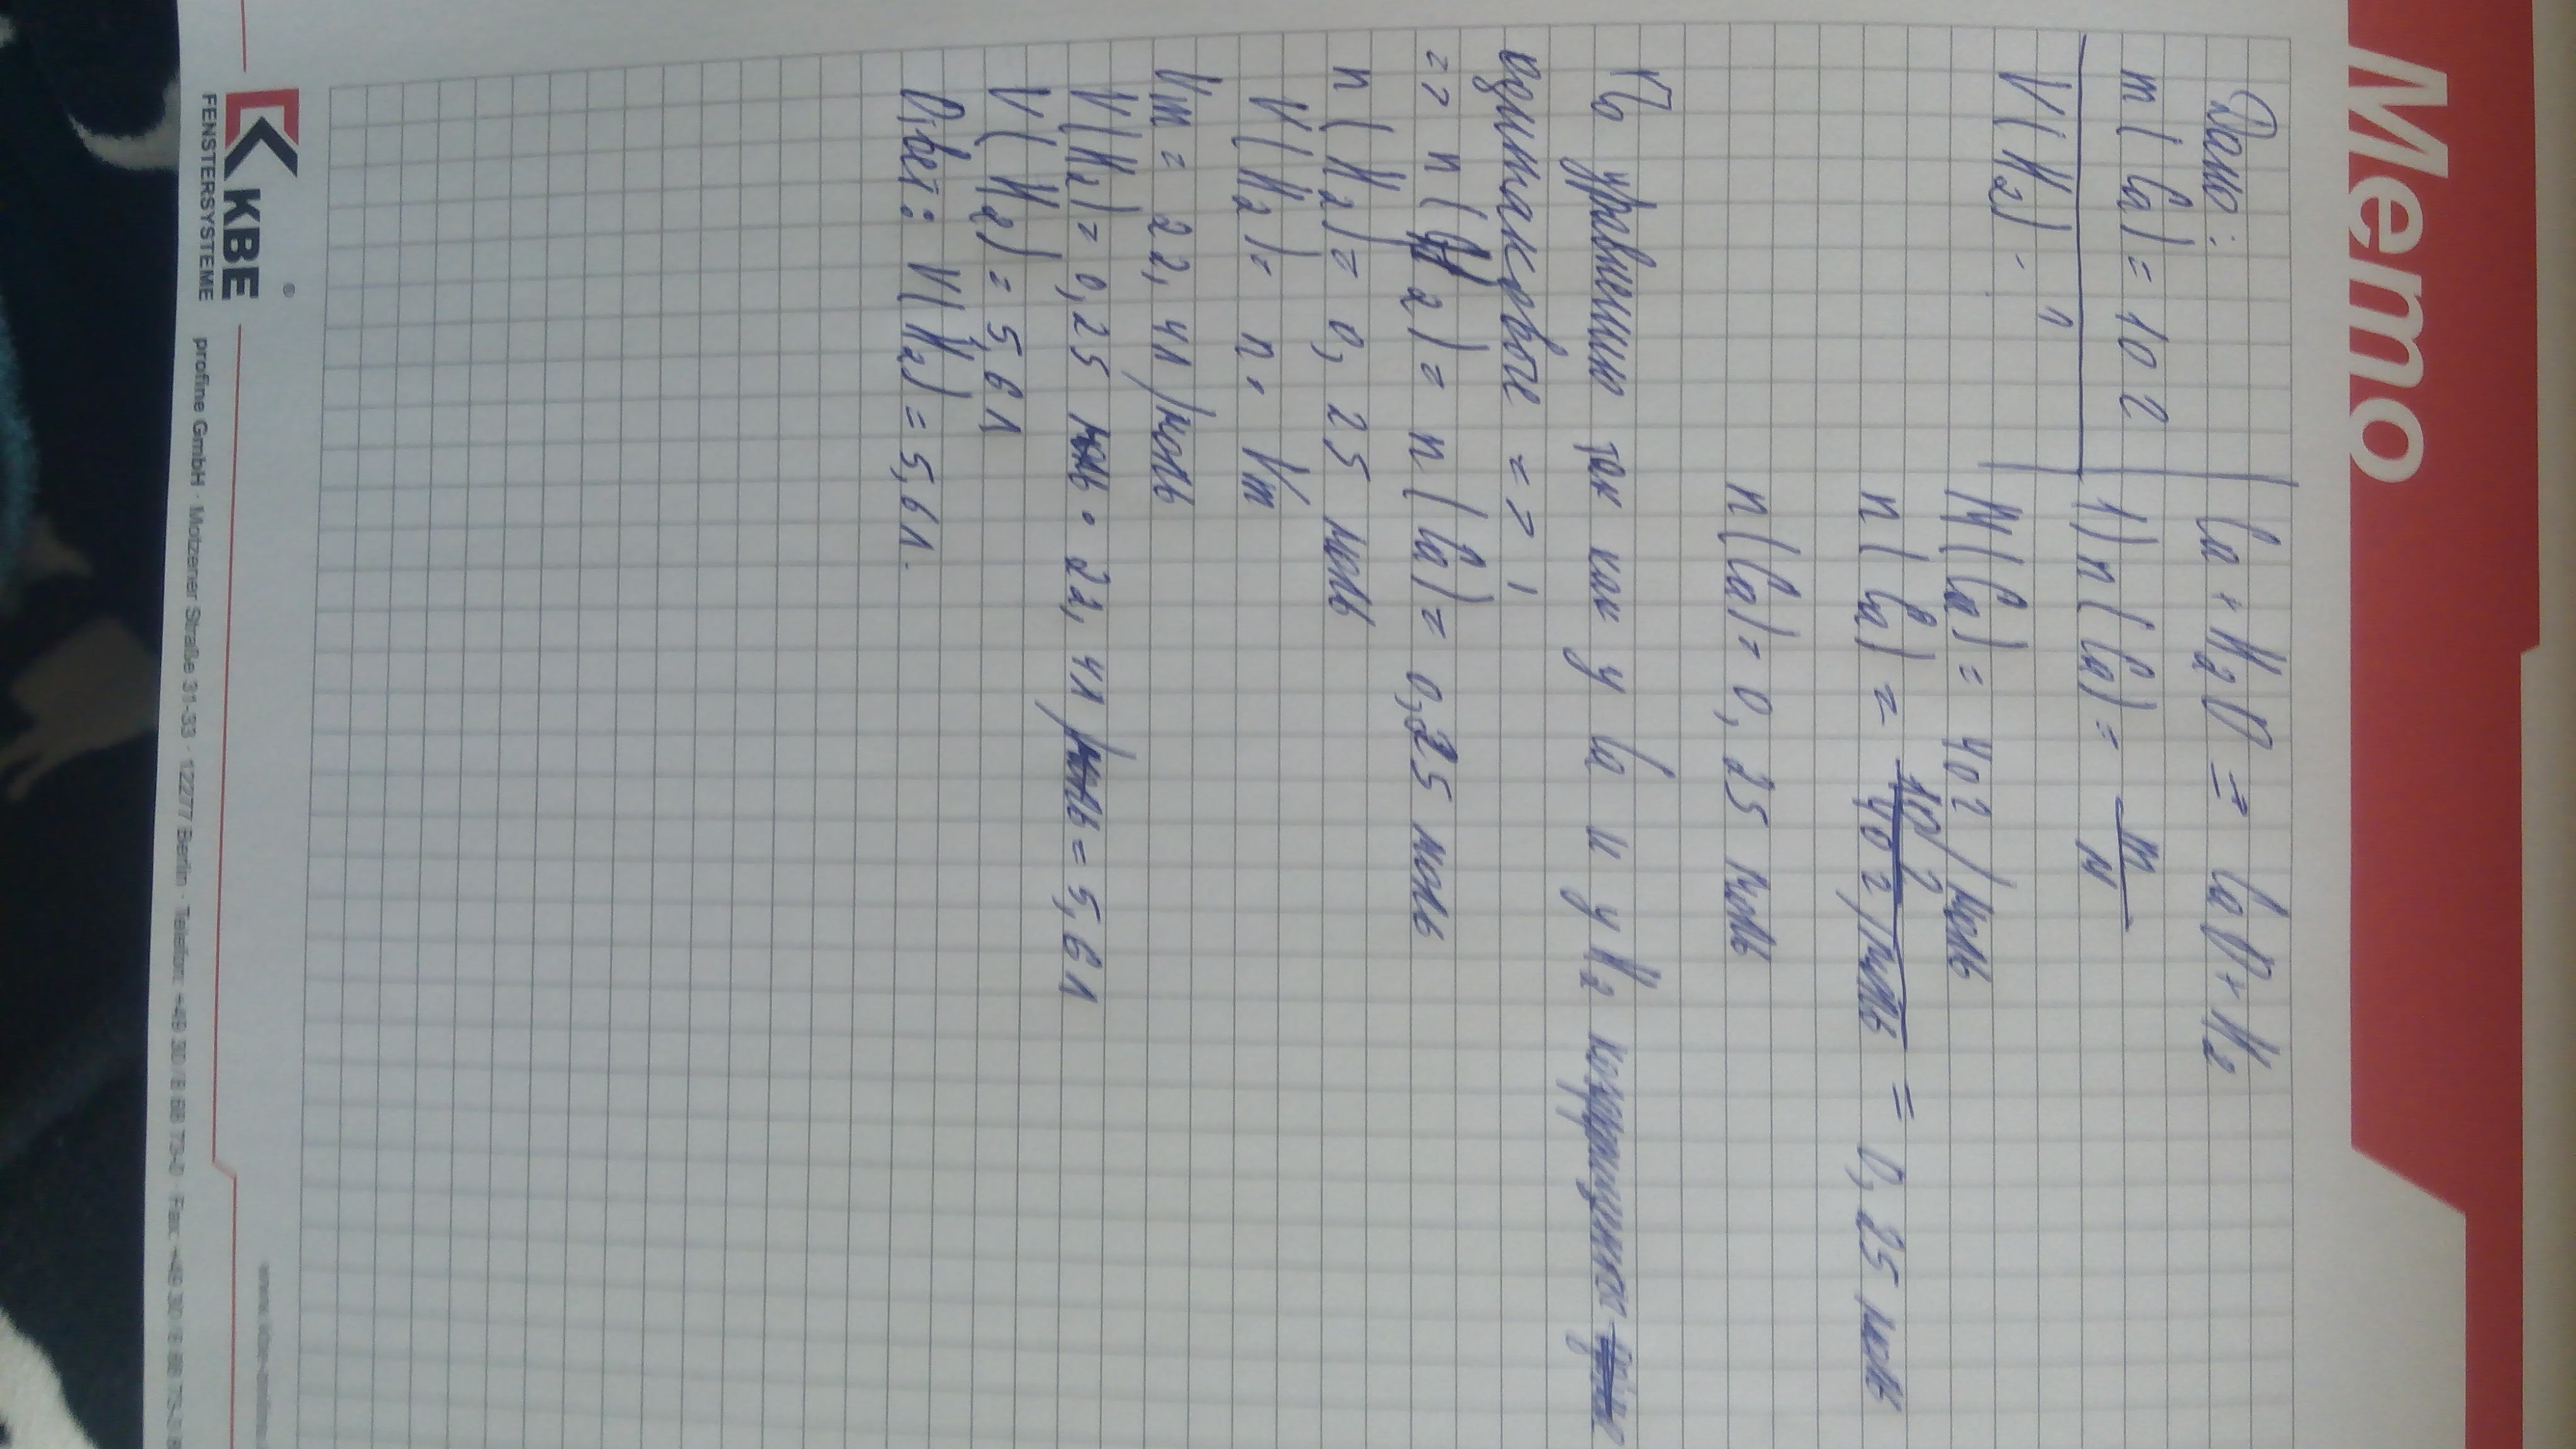 Memo
Дано:
m(Ca) = 10 г
V(H2) - ?
Ca + H2O → CaO + H2
1) n(Ca) = m/M
M(Ca) = 40 г/моль
n(Ca) = 10 г/40 г/моль = 0,25 моль
n(Ca) = 0,25 моль
По уравнению так как у Ca и у H2 коэффициенты
одинаковые =>
=> n(H2) = n(Ca) = 0,25 моль
n(H2) = 0,25 моль
V(H2) = n · Vm
Vm = 22,4л/моль
V(H2) = 0,25 моль · 22,4л/моль = 5,6л
V(H2) = 5,6л
Ответ: V(H2) = 5,6л.
KBE®
FENSTERSYSTEME
profine GmbH · Motzener Straße 31-33 · 12277 Berlin · Telefon: +49 30/8 68 73-0 · Fax: